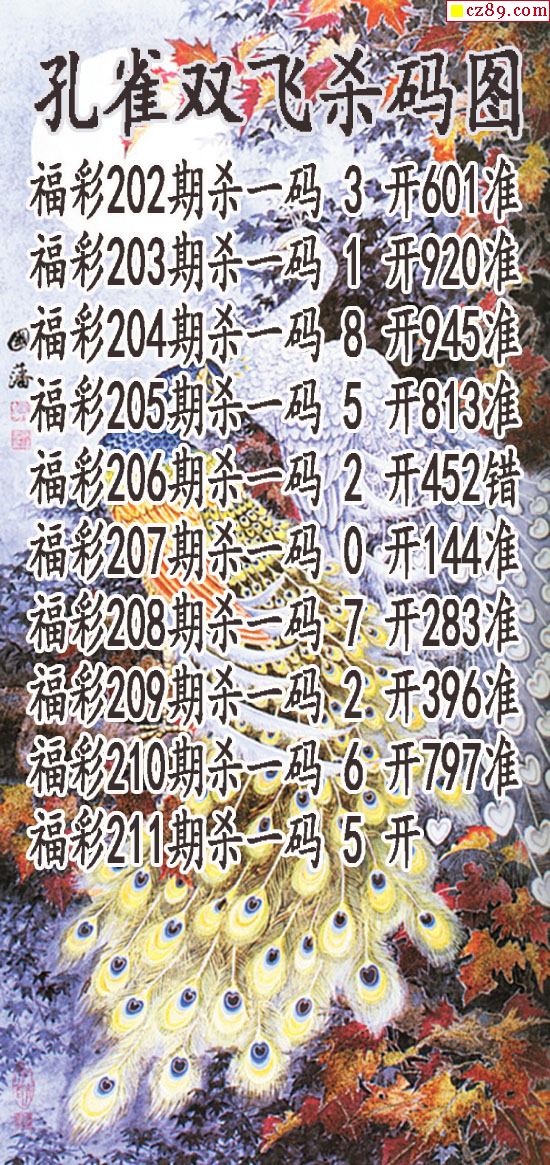 cz89.com
孔雀双飞杀码图
福彩202期杀一码 3 开601准
福彩203期杀一码 1 开920准
福彩204期杀一码 8 开945准
福彩205期杀一码 5 开813准
福彩206期杀一码 2 开452错
福彩207期杀一码 0 开144准
福彩208期杀一码 7 开283准
福彩209期杀一码 2 开396准
福彩210期杀一码 6 开797准
福彩211期杀一码 5 开
國藩